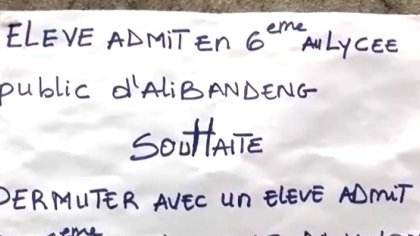 ELEVE ADMIT EN 6eme AU LYCEE
public d'ALiBANDENG
SOUHAITE
PERMUTER AVEC un ELEVE ADMIT
eme